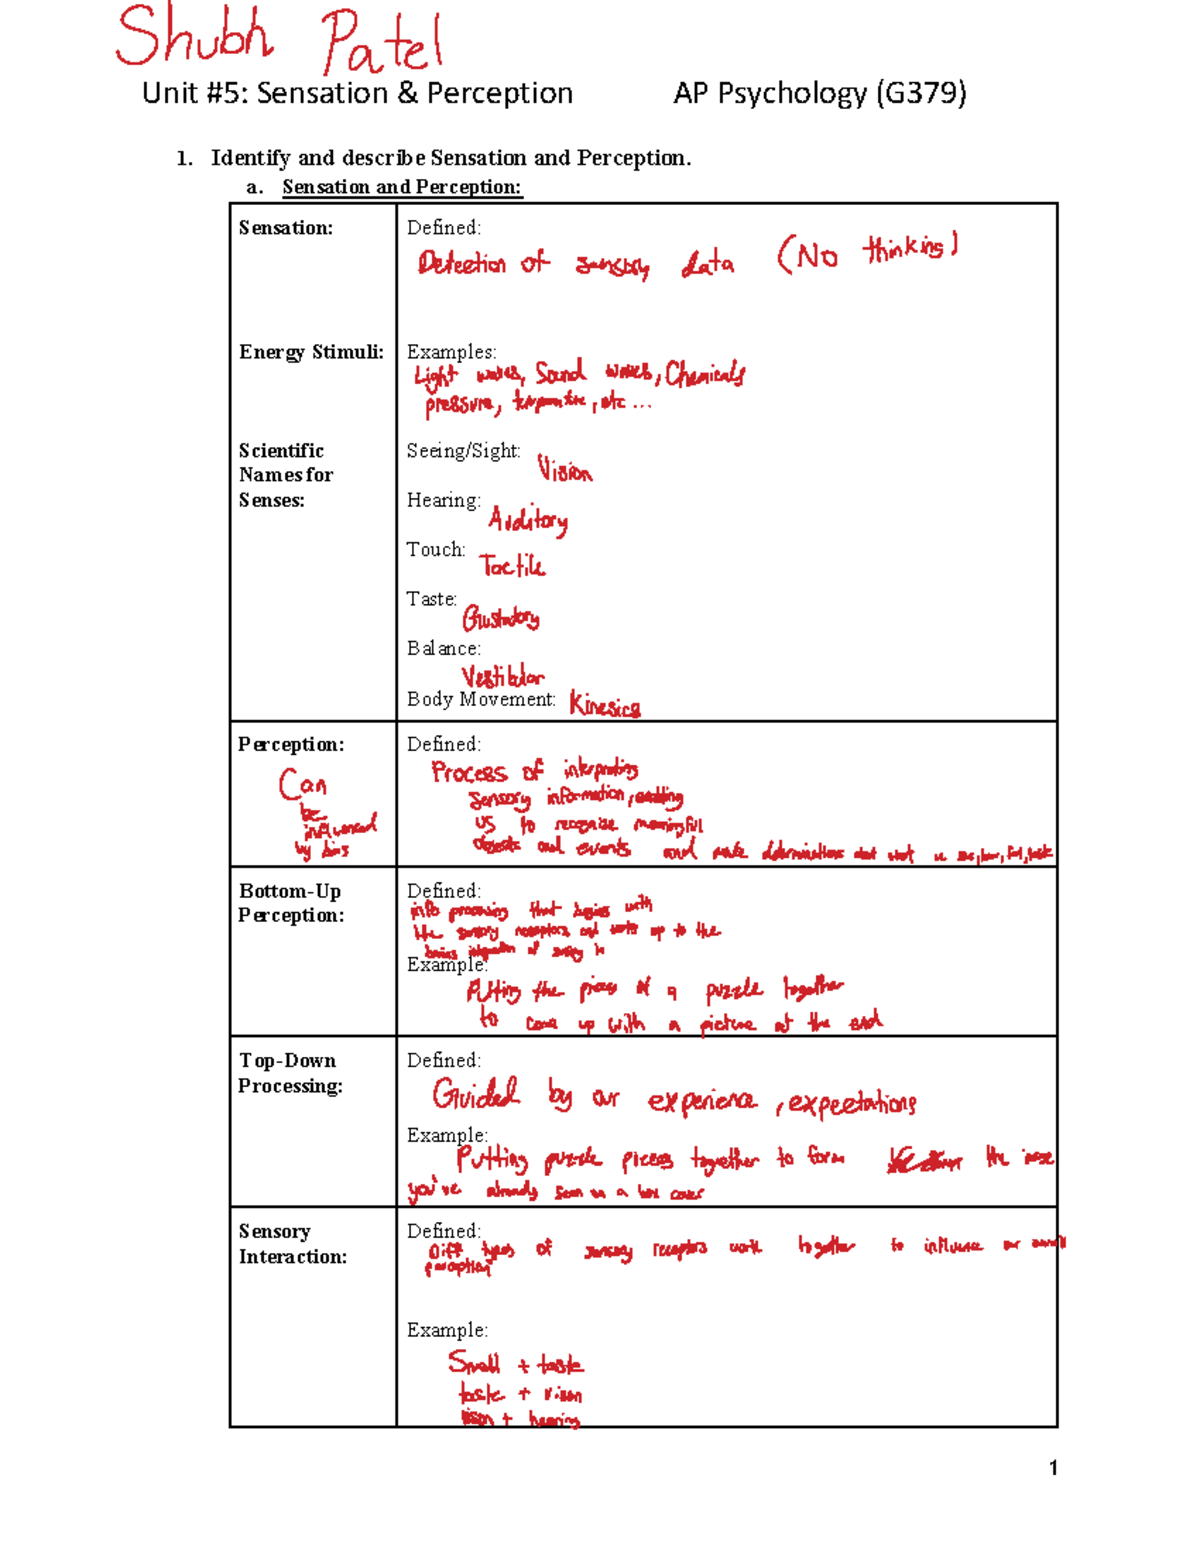 Shubh Patel
Unit #5: Sensation & Perception AP Psychology (G379)
1. Identify and describe Sensation and Perception.
a. Sensation and Perception:
Sensation: Defined:
Detection of sensory data (No thinking)
Energy Stimuli: Examples:
Light waves, Sound waves, Chemicals
pressure, temperature, etc...
Scientific Names for Senses: Seeing/Sight: Vision
Hearing: Auditory
Touch: Tactile
Taste: Gustatory
Balance: Vestibular
Body Movement: Kinesics
Perception: Defined:
Can
be
influenced
by bias
Process of interpreting
sensory information, enabling
us to recognize meaningful
objects and events and make determinations about what we see, hear, feel, taste
Bottom-Up Perception: Defined:
info processing that begins with
the sensory receptors and works up to the
brains integration of sensory
Example:
Putting the pieces of a puzzle together
to come up with a picture at the end
Top-Down Processing: Defined:
Guided by our experience, expectations
Example:
Putting puzzle pieces together to form the image
you've already seen on a box cover
Sensory Interaction: Defined:
Diff types of sensory receptors work together to influence our overall
perception
Example:
Smell + taste
taste + vison
vison + hearing
1